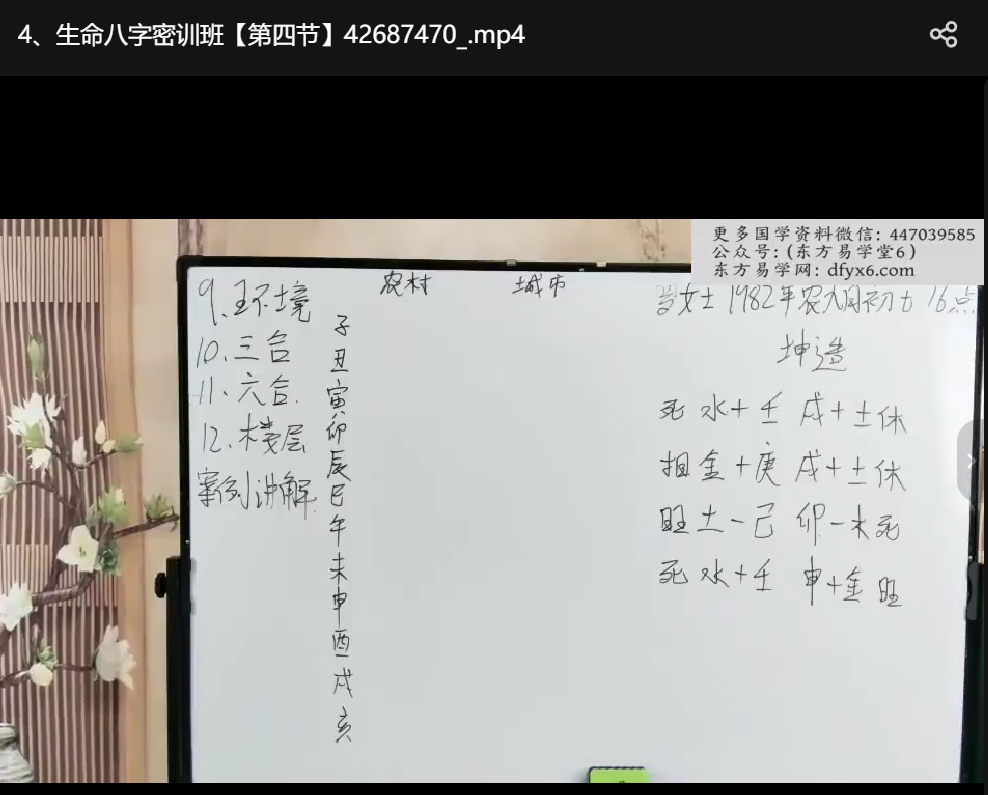 4、生命八字密训班【第四节】42687470_.mp4
更多国学资料微信: 447039585
公众号: (东方易学堂6)
东方易学网: dfyx6.com
9.环境
10.三合
11、六合.
12.楼层
案例讲解
农村
城市
子
丑
寅
卯
辰
巳
午
未
申
酉
戌
亥
女士 1982年农 初七 16点
坤造
死 水+壬 戌+土休
相 金+庚 戌+土休
旺 土-己 卯-木死
死 水+壬 申+金 旺